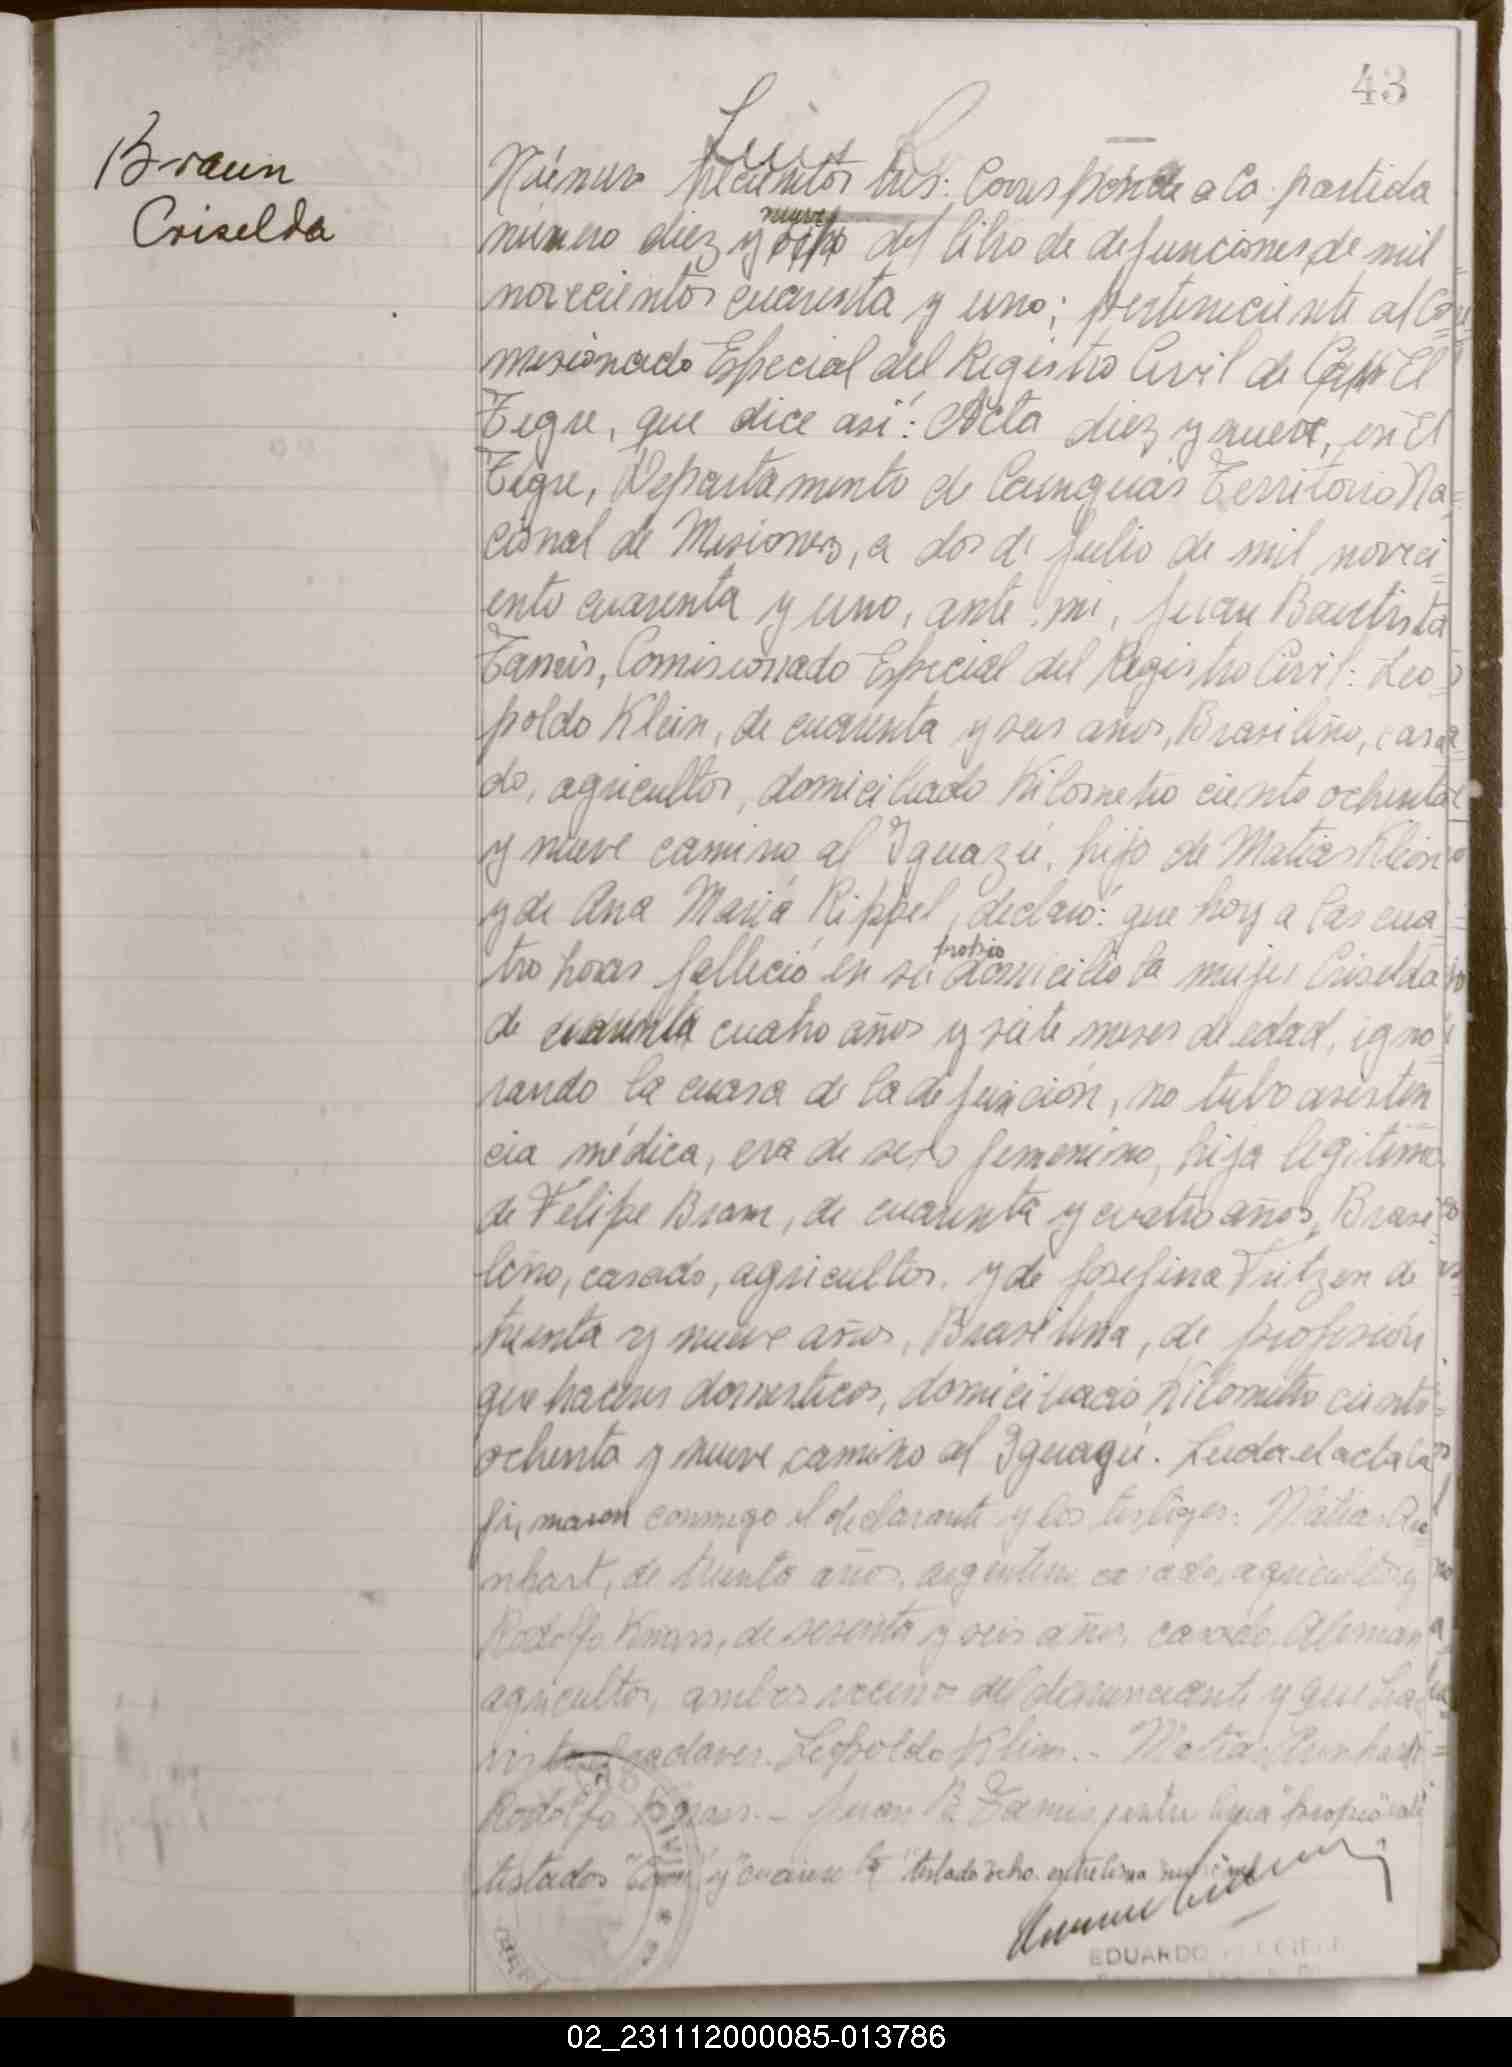 43
Braun
Criselda
Número trecientos tres: Corresponde a la partida
nueve
número diez y ocho del libro de defunciones de mil
novecientos cuarenta y uno; perteneciente al Co-
mesionado Especial del Registro Civil de El
Tigre, que dice así: Acta diez y nueve, en El
Tigre, Departamento de Caunguas Territorio Na-
cional de Misiones, a dos de julio de mil noveci-
ento cuarenta y uno, ante mi, Juan Bautista
Comisionado Especial del Registro Civil: Leo-
poldo Klein, de cuarenta y seis años, Brasileño, casa-
do, agricultor, domiciliado Kilometro ciento ochenta
y nueve camino al Iguazú, hijo de Matias Klein
y de Ana Maria Rippel, declaró: que hoy a las cua-
propio
tro horas falleció en su domicilio la mujer Criselda
de cuarenta cuatro años y siete meses de edad, igno-
rando la cuasa de la defunción, no tubo asisten
cia médica, era de sexo femenino, hija legitima
de Felipe Bram, de cuarenta y cuatro años, Brasi-
leño, casado, agricultor, y de Josefina Fritzen de
treinta y nueve años, Brasileña, de profesión
que haceres domesticos, domiciliado Kilometro ciento
ochenta y nueve camino al Iguazú. Leida el acta la
firmaron conmigo el declarante y los testigos: Matias Rei
nhart, de treinta años, argentino casado, agricultor y
Rodolfo de sesenta y seis años, casado, Aleman
agricultor, ambos vecino del denunciante y que ha
visto el cadaver. Leopoldo Klein.- Matias Reinhart
Rodolfo Juan B. entre linea "propio" vale
testados y cuarenta testado ocho entrelinea nueve vale
EDUARDO
02_231112000085-013786